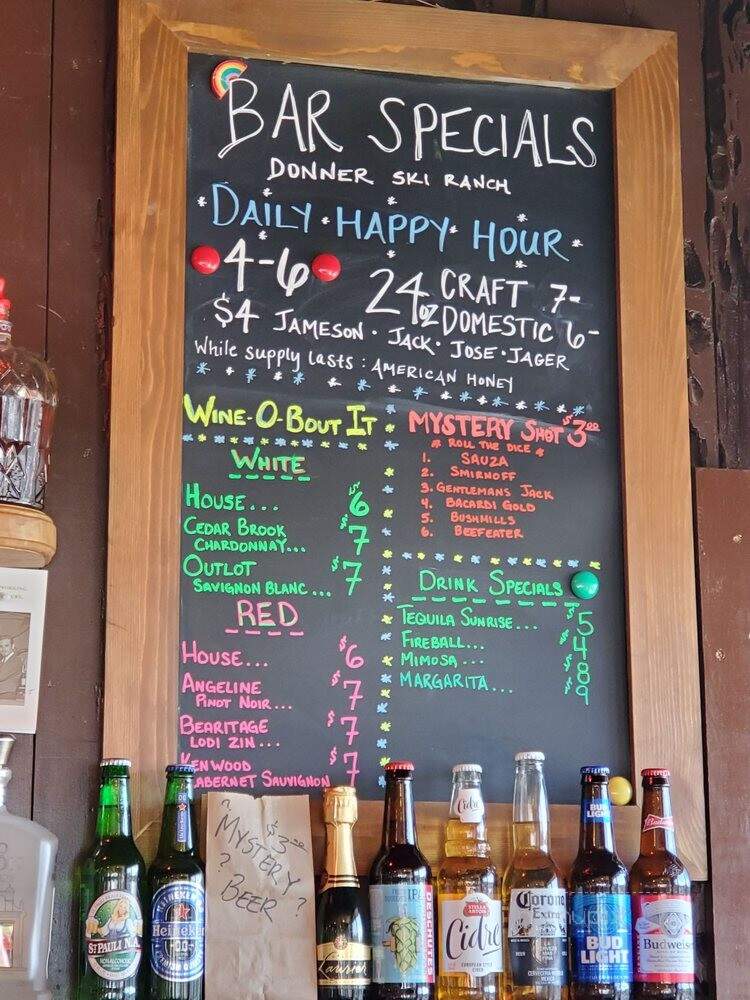 BAR SPECIALS
DONNER SKI RANCH
DAILY HAPPY HOUR
4-6
24oz CRAFT 7-
DOMESTIC 6-
$4 JAMESON · JACK · JOSE · JAGER
While supply lasts : AMERICAN HONEY
WINE-O-BOUT IT
WHITE
HOUSE... $6
CEDAR BROOK
CHARDONNAY... $7
OUTLOT
SAVIGNON BLANC... $7
RED
HOUSE... $6
ANGELINE
PINOT NOIR... $7
BEARITAGE
LODI ZIN... $7
KENWOOD
CABERNET SAUVIGNON $7
MYSTERY SHOT $3.00
* ROLL THE DICE *
1. SAUZA
2. SMIRNOFF
3. GENTLEMANS JACK
4. BACARDI GOLD
5. BUSHMILLS
6. BEEFEATER
DRINK SPECIALS
TEQUILA SUNRISE... $5
FIREBALL... $4
MIMOSA... $8
MARGARITA... $9
? $3.00
MYSTERY
? BEER ?
ST PAULI N.A.
NON-ALCOHOLIC
HEINEKEN
Heineken
0.0
IPA
DESCHUTES
Cidre
STELLA ARTOIS
Cidre
EUROPEAN STYLE
CIDER
Corona
Extra
CERVECERIA MEXICO
BUD
LIGHT
BUD
LIGHT
Budweiser